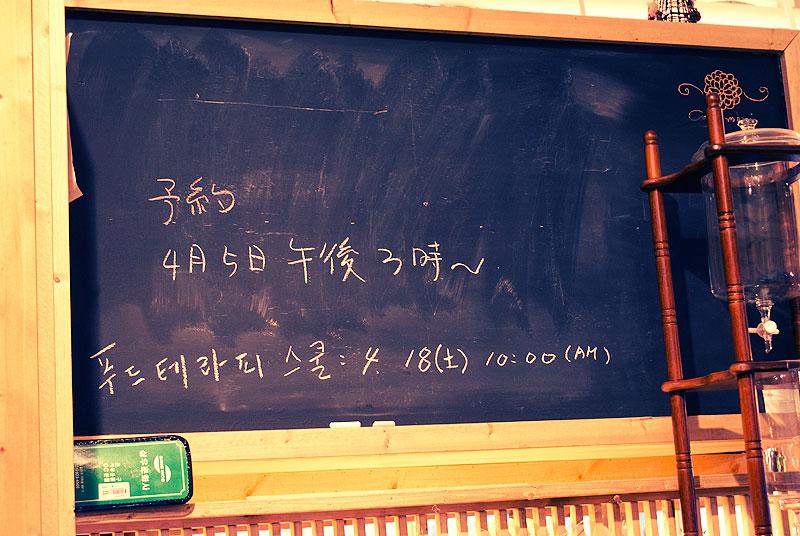 予約
4月5日 午後3時~
푸드테라피 스쿨: 4. 18(土) 10:00 (AM)